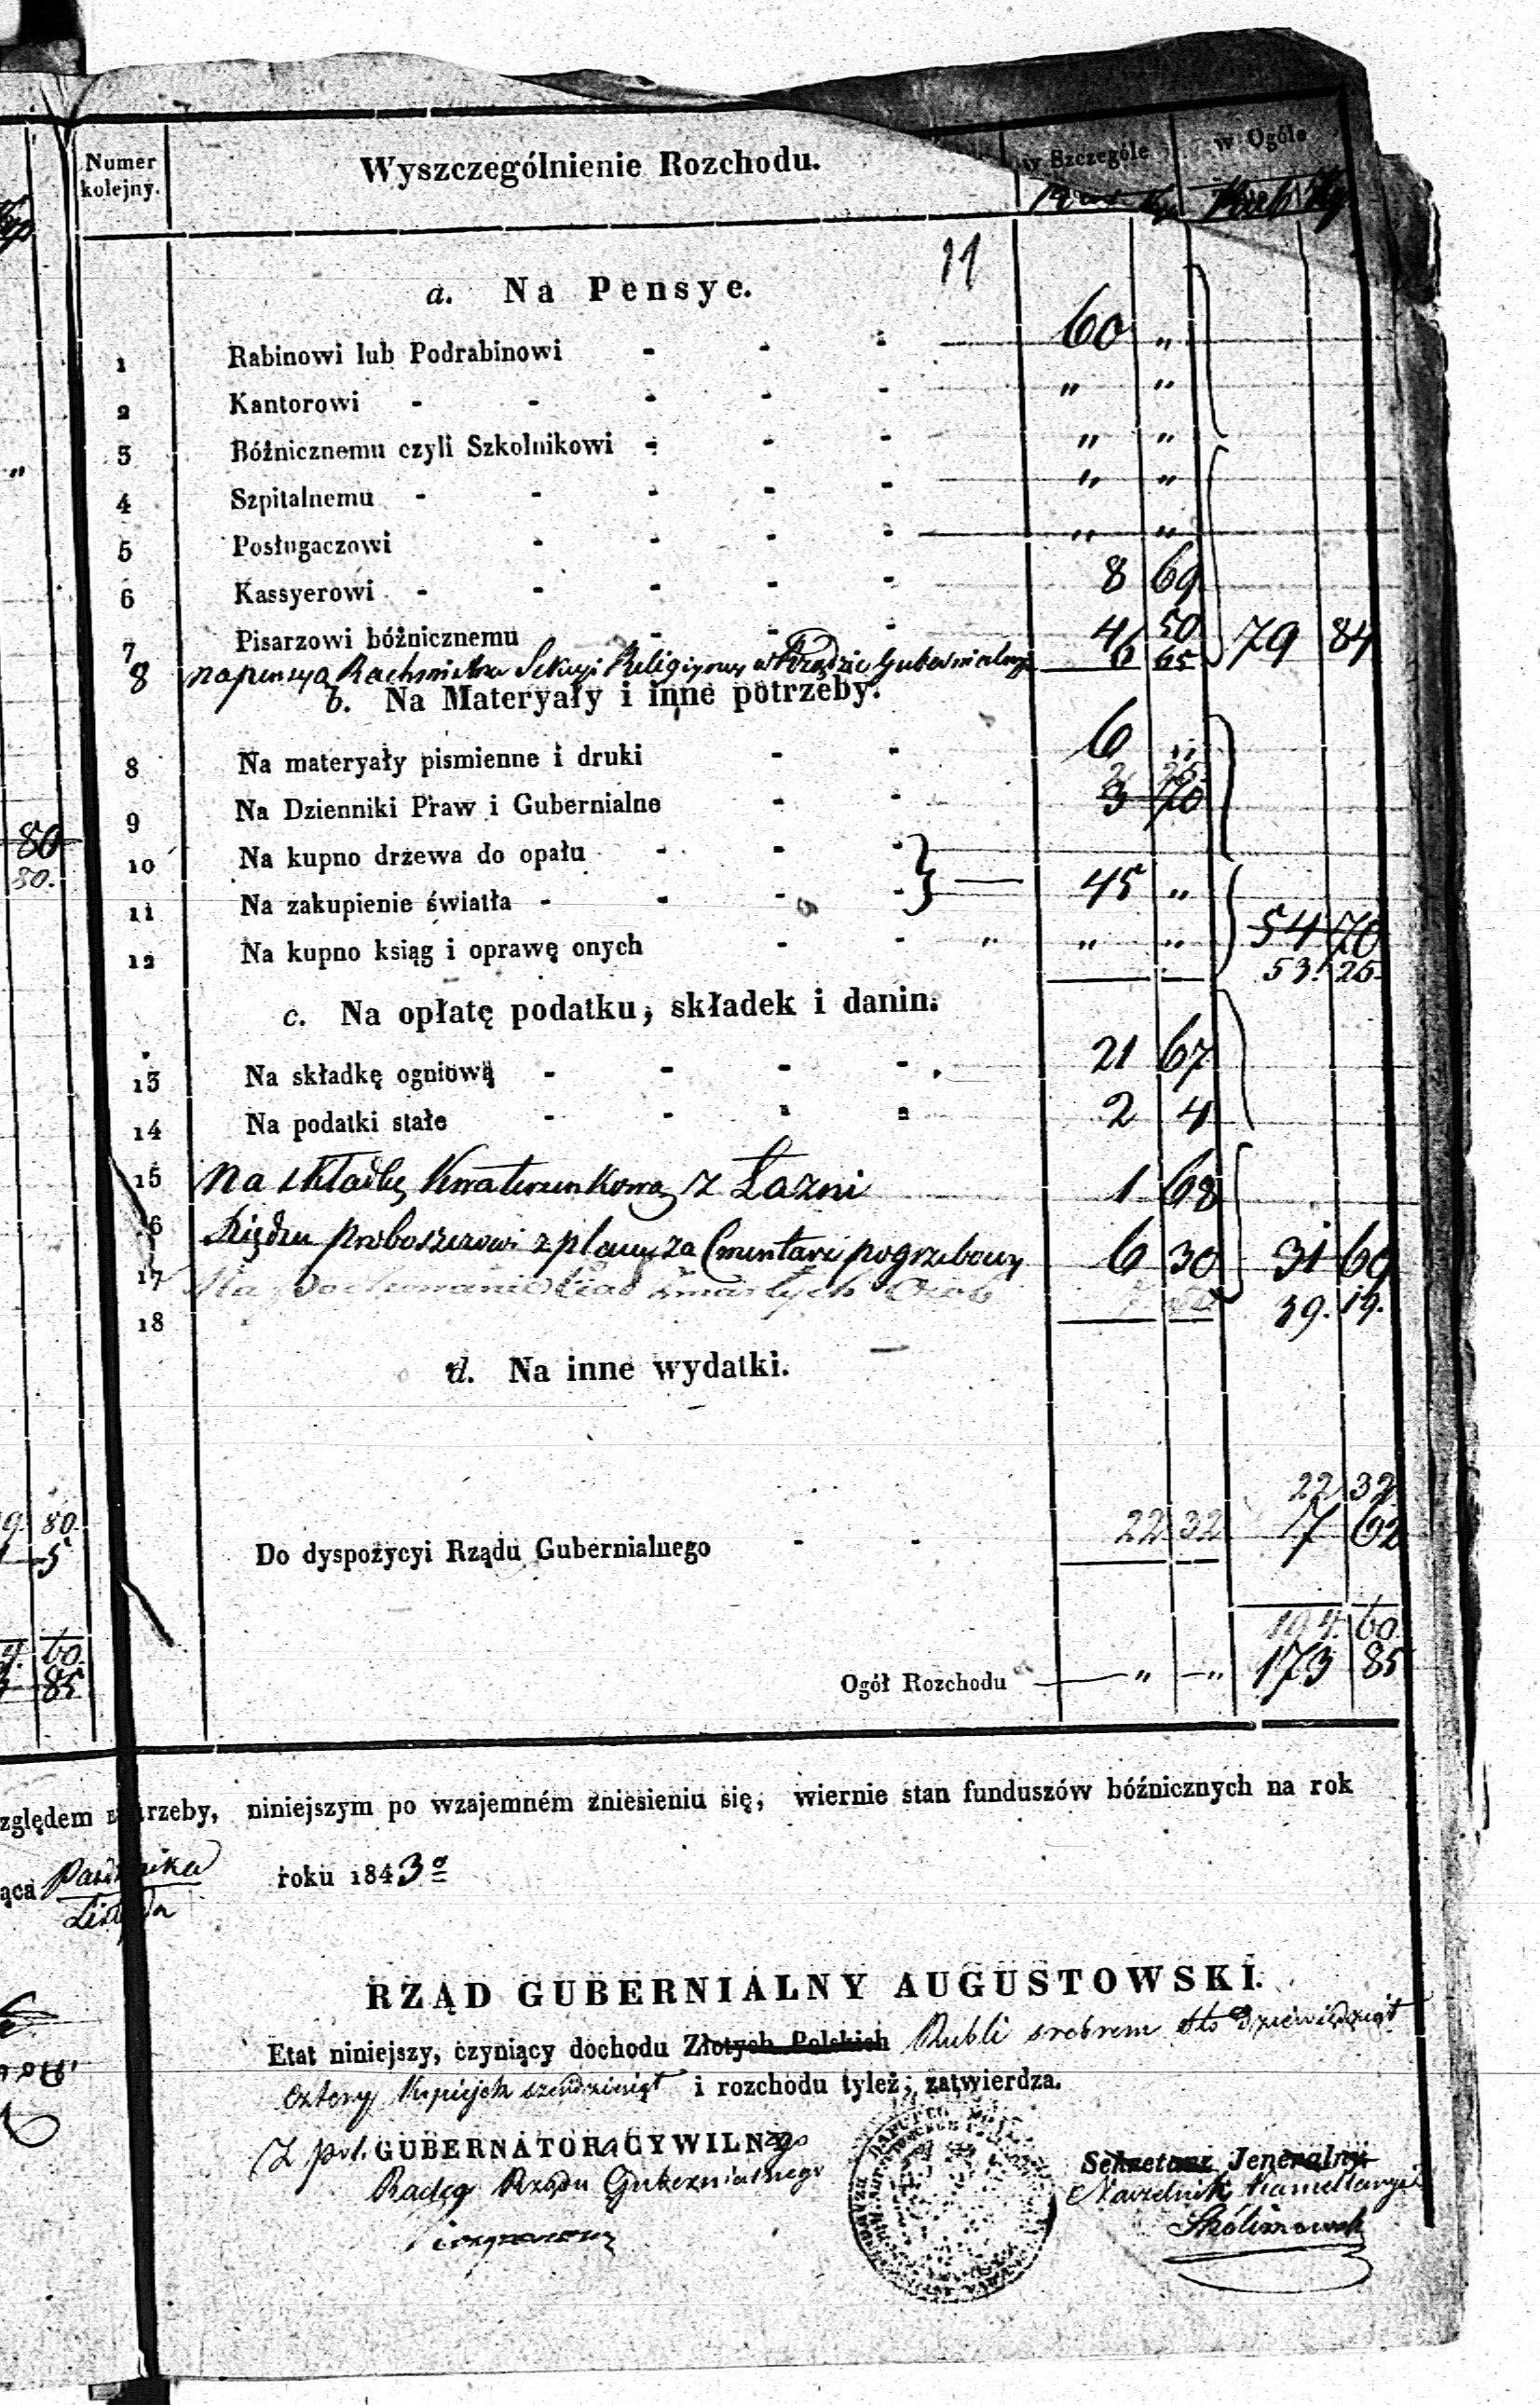 Numer kolejny.
Wyszczególnienie Rozchodu.
w Szczególe
w Ogóle
Kop
11
a. Na Pensye.
1 Rabinowi lub Podrabinowi - - - 60 „
2 Kantorowi - - - - - „ „
3 Bóżnicznemu czyli Szkolnikowi - - - „ „
„
4 Szpitalnemu - - - - - „ „
5 Posługaczowi - - - - „ „
6 Kassyerowi - - - - - 8 69
7 Pisarzowi bóżnicznemu - - - 4 50 79 84
8 na pensyą Rachmistrza Sekcyi Religijney w Rządzie Gubernialnym 6 65
b. Na Materyały i inne potrzeby.
8 Na materyały pismienne i druki - - 6 „
2 25
9 Na Dzienniki Praw i Gubernialne - - 3 70
80
10 Na kupno drzewa do opału - - -
80.
11 Na zakupienie światła - - - - 45 „
54 70
12 Na kupno ksiąg i oprawę onych - - „ „ „
53. 25.
c. Na opłatę podatku, składek i danin.
13 Na składkę ogniową - - - - 21 67
14 Na podatki stałe - - - - 2 4
15 Na składkę Kwaterunkową z Łazni 1 68
16 Księdzu proboszczowi z placu za Cmentarz pogrzebowy 6 30 31 69
17 Na pochowanie Ciał zmarłych Osób 7 50
39. 19.
18
d. Na inne wydatki.
22 32
9. 80.
5
Do dyspozycyi Rządu Gubernialnego - - 22 32 17 62
194. 60
60
85
Ogół Rozchodu „ „ 173 85
względem potrzeby, niniejszym po wzajemném zniesieniu się, wiernie stan funduszów bóźnicznych na rok
Października
Listopada
roku 1843º
RZĄD GUBERNIALNY AUGUSTOWSKI.
Etat niniejszy, czyniący dochodu Złotych Polskich Rubli srebrem sto dziewięćdziąt
cztery Kopiejek sześćdziesiąt i rozchodu tyleż, zatwierdza.
GUBERNATORA CYWILNego
Radca Rządu Gubernialnego
Sekretarz Jeneralny
Naczelnik Kancellaryi
Skólimowski